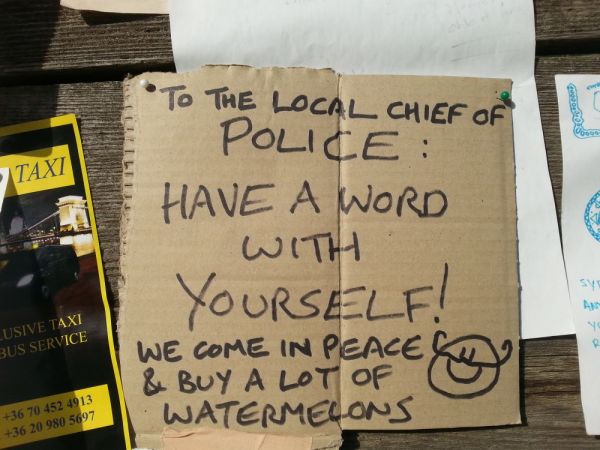 TO THE LOCAL CHIEF OF
POLICE:
HAVE A WORD
WITH
YOURSELF!
WE COME IN PEACE
& BUY A LOT OF
WATERMELONS
TAXI
LUSIVE TAXI
BUS SERVICE
+36 70 452 4913
+36 20 980 5697